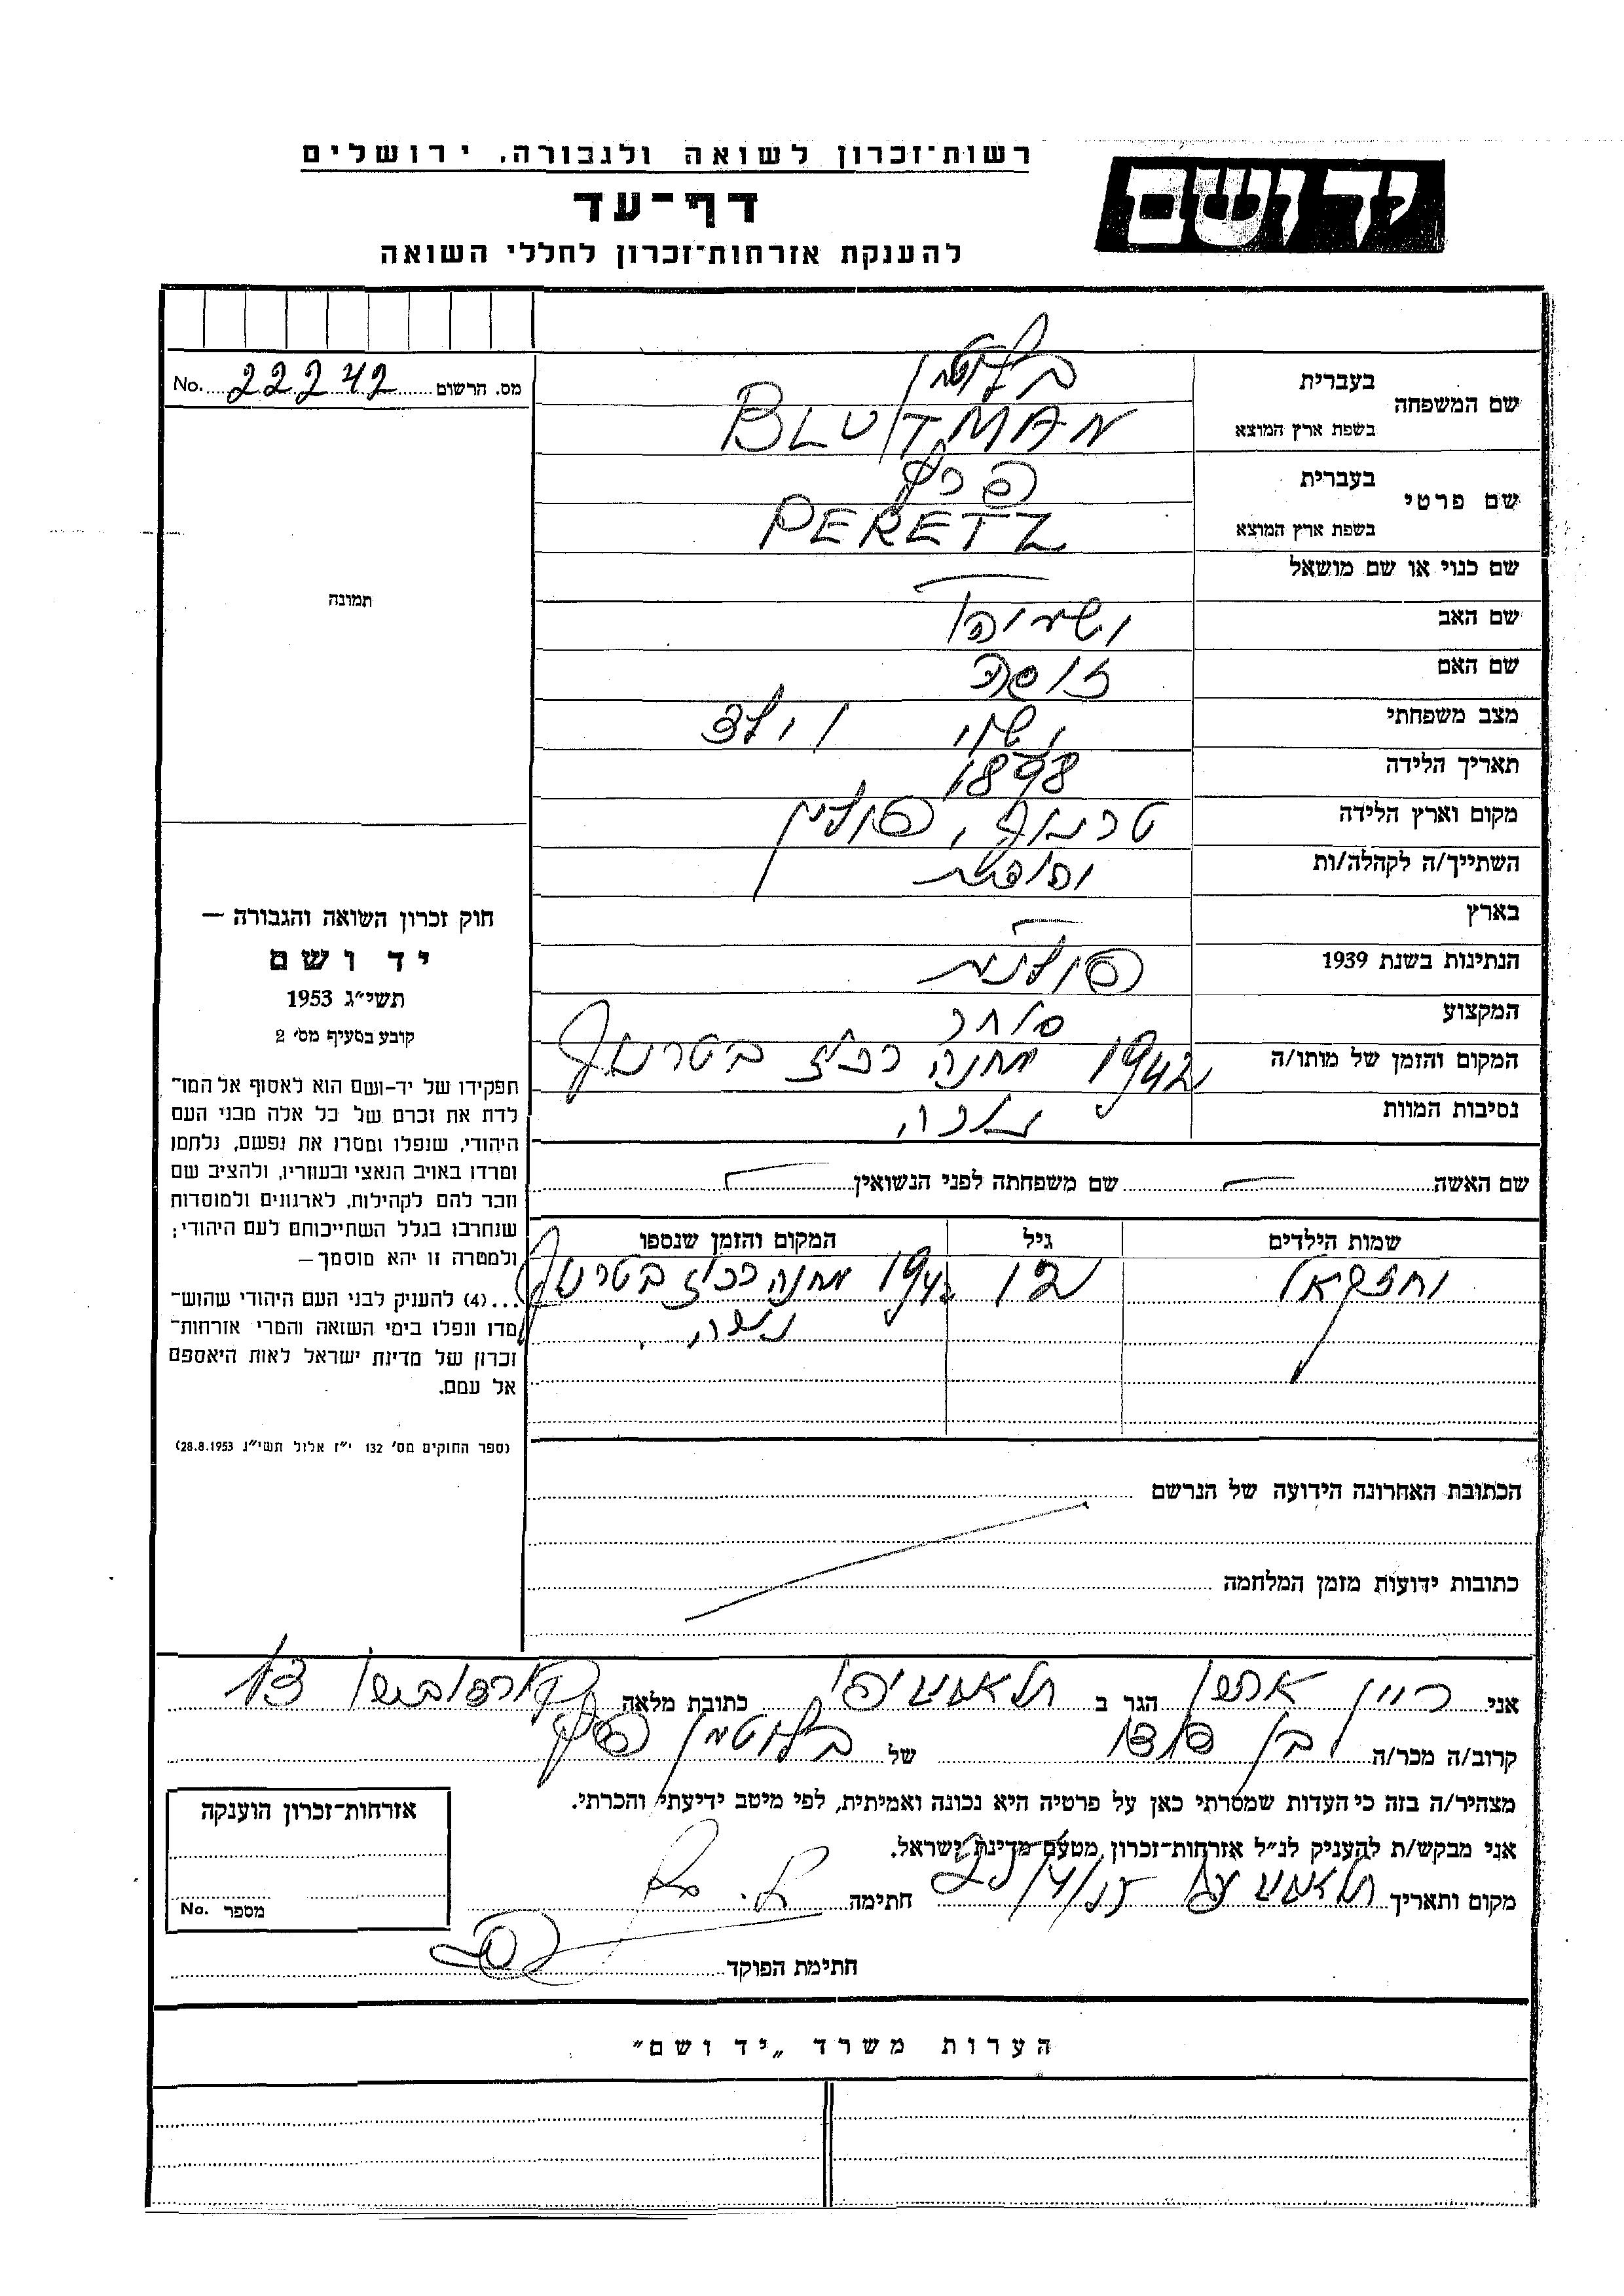 רשות־זכרון לשואה ולגבורה, ירושלים
יד ושם
דף־עד
להענקת אזרחות־זכרון לחללי השואה
מס. הרשום 22242 No.
שם המשפחה בעברית בלוטמן
בשפת ארץ המוצא BLUTMAN
שם פרטי בעברית פרץ
בשפת ארץ המוצא PERETZ
שם כנוי או שם מושאל
שם האב ישעיהו
שם האם
מצב משפחתי נשוי וילד
תאריך הלידה 1898
מקום וארץ הלידה פולין
השתייך/ה לקהלה/ות
בארץ
הנתינות בשנת 1939 פולנית
המקצוע סוחר
המקום והזמן של מותו/ה 1942 מחנה רכוז
נסיבות המוות
שם האשה שם משפחתה לפני הנשואין
שמות הילדים גיל המקום והזמן שנספו
יחזקאל 12 1942 מחנה רכוז
תמונה
חוק זכרון השואה והגבורה —
יד ושם
תשי״ג 1953
קובע בסעיף מס׳ 2
תפקידו של יד-ושם הוא לאסוף אל המו־
לדת את זכרם של כל אלה מבני העם
היהודי, שנפלו ומסרו את נפשם, נלחמו
ומרדו באויב הנאצי ובעוזריו, ולהציב שם
וזכר להם לקהילות, לארגונים ולמוסדות
שנחרבו בגלל השתייכותם לעם היהודי;
ולמטרה זו יהא מוסמך—
...(4) להעניק לבני העם היהודי שהוש־
מדו ונפלו בימי השואה והמרי אזרחות־
זכרון של מדינת ישראל לאות היאספם
אל עמם.
(ספר החוקים מס׳ 132 י״ז אלול תשי״ג 28.8.1953)
הכתובת האחרונה הידועה של הנרשם
כתובות ידועות מזמן המלחמה
אני הגר ב כתובת מלאה 13
קרוב/ה מכר/ה בן דודו של בלוטמן פרץ
מצהיר/ה בזה כי העדות שמסרתי כאן על פרטיה היא נכונה ואמיתית, לפי מיטב ידיעתי והכרתי.
אני מבקש/ת להעניק לנ״ל אזרחות־זכרון מטעם מדינת ישראל.
מקום ותאריך חתימה
חתימת הפוקד
אזרחות־זכרון הוענקה
מספר No.
הערות משרד „יד ושם״